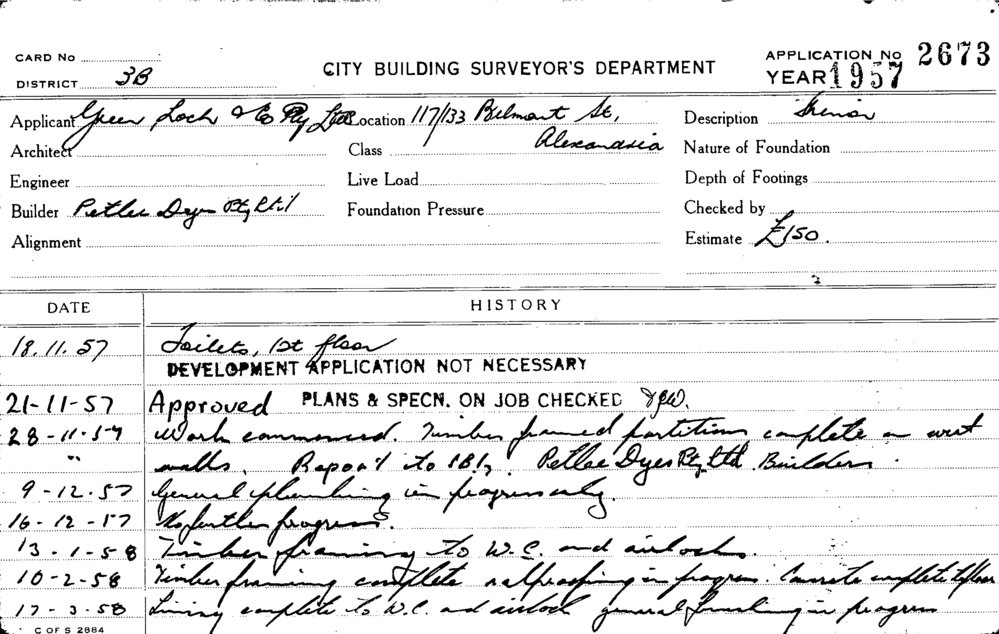 CARD No
DISTRICT 3B
CITY BUILDING SURVEYOR'S DEPARTMENT
APPLICATION No 2673
YEAR 1957
Applicant Green Loch & Co Pty Ltd Location 117/133 Belmont St,
Alexandria
Description
Architect
Class
Nature of Foundation
Engineer
Live Load
Depth of Footings
Builder Petlee Dyer Pty Ltd
Foundation Pressure
Checked by
Alignment
Estimate £150.
DATE HISTORY
18.11.57 Toilets, 1st floor
DEVELOPMENT APPLICATION NOT NECESSARY
21-11-57 Approved PLANS & SPECN. ON JOB CHECKED
28-11-57 Work commenced. Timber framed partitions complete on west
" walls. Report to Pty Ltd Builders.
9-12-57 General plumbing in progress only.
16-12-57 No further progress.
13-1-58 Timber framing to W.C. and airlocks.
10-2-58 Timber framing complete in progress. Concrete complete to floor
17-3-58 Lining complete to W.C. and airlock general finishing in progress
C OF S 2884